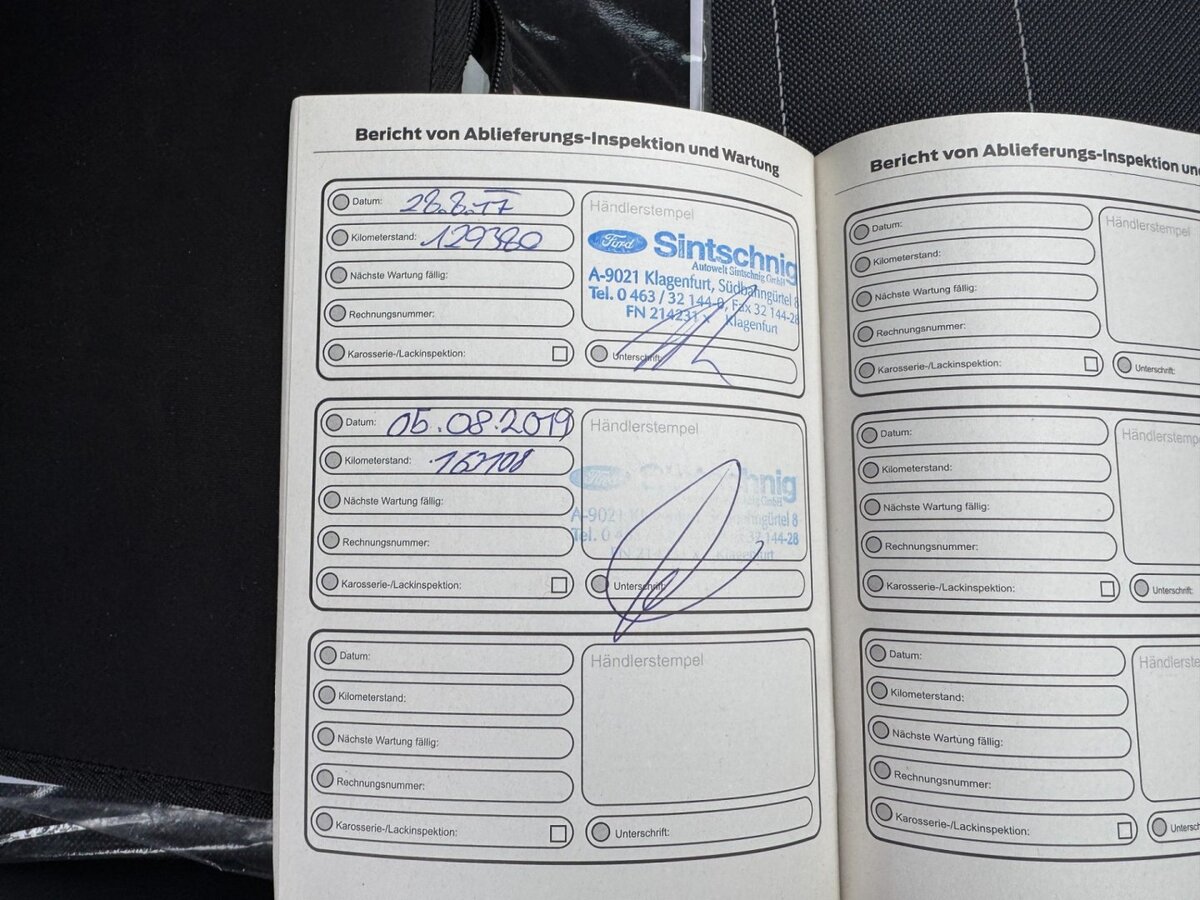 Bericht von Ablieferungs-Inspektion und Wartung
Datum: 28.8.17
Kilometerstand: 129380
Nächste Wartung fällig:
Rechnungsnummer:
Karosserie-/Lackinspektion:
Händlerstempel
Ford Sintschnig
Autowelt Sintschnig GmbH
A-9021 Klagenfurt, Südbahngürtel 8
Tel. 0 463 / 32 144-0, Fax 32 144-28
FN 214231 x Klagenfurt
Unterschrift:
Datum: 05.08.2019
Kilometerstand:
Nächste Wartung fällig:
Rechnungsnummer:
Karosserie-/Lackinspektion:
Händlerstempel
Ford
GmbH
A-9021 8
Tel. 0 32 144-28
Klagenfurt
Unterschrift:
Datum:
Kilometerstand:
Nächste Wartung fällig:
Rechnungsnummer:
Karosserie-/Lackinspektion:
Händlerstempel
Unterschrift:
Bericht von Ablieferungs-Inspektion un
Datum:
Kilometerstand:
Nächste Wartung fällig:
Rechnungsnummer:
Karosserie-/Lackinspektion:
Händlerstempel
Unterschrift:
Datum:
Kilometerstand:
Nächste Wartung fällig:
Rechnungsnummer:
Karosserie-/Lackinspektion:
Händlerstemp
Unterschrift:
Datum:
Kilometerstand:
Nächste Wartung fällig:
Rechnungsnummer:
Karosserie-/Lackinspektion:
Händlerste
Untersch